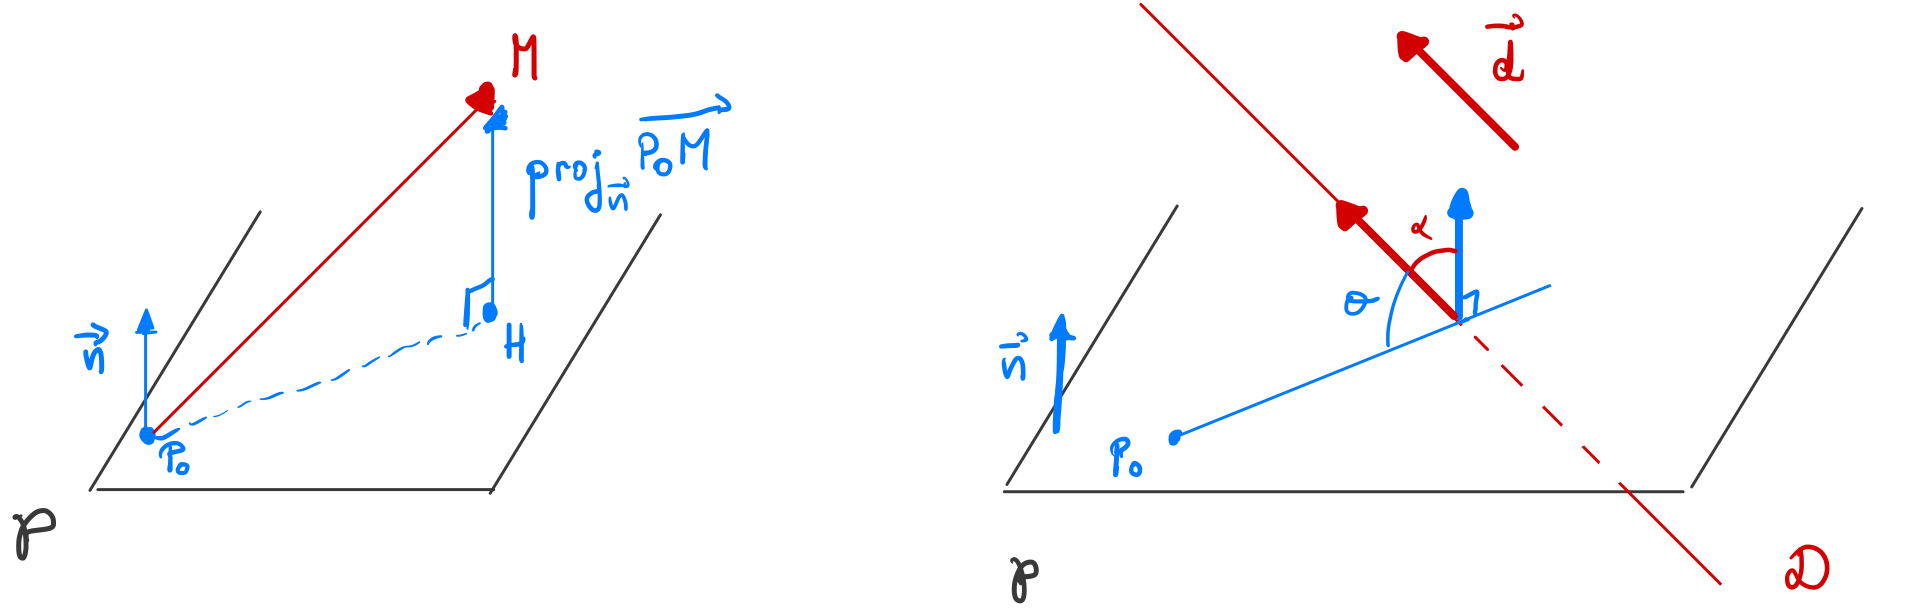 M
proj_{\vec{n}} \overrightarrow{P_0M}
\vec{n}
H
P_0
P
\vec{d}
α
θ
\vec{n}
P_0
P
D